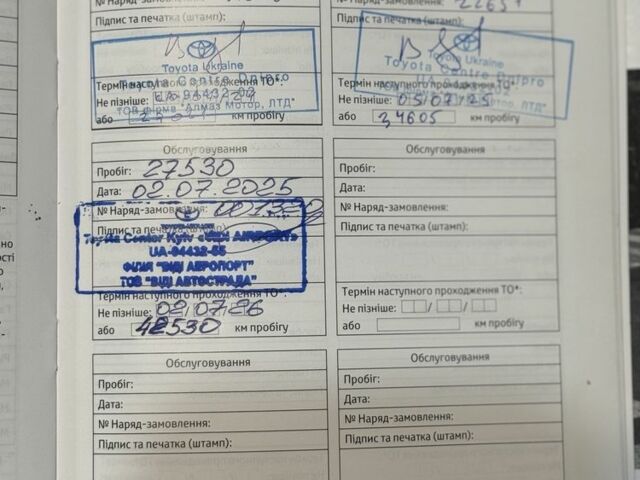 № Наряд-замовлення:
Підпис та печатка (штамп):
Toyota Ukraine
Toyota Centre Dnipro
Термін наступного проходження ТО*:
UA-94432-00
Не пізніше:
ТОВ фірма "Алмаз Мотор, ЛТД"
або км пробігу
22651
Підпис та печатка (штамп):
Toyota Ukraine
Toyota Centre Dnipro
Термін наступного проходження ТО*:
Не пізніше: 05/07/25
або 34605 км пробігу
Обслуговування
Пробіг: 27530
Дата: 02.07.2025
№ Наряд-замовлення:
Підпис та печатка (штамп):
Toyota Center Kyiv «VIDI AIRPORT»
UA-04432-55
ФІЛІЯ "ВІДІ АЕРОПОРТ"
ТОВ "ВІДІ АВТОСТРАДА"
Термін наступного проходження ТО*:
Не пізніше: 02/07/26
або 42530 км пробігу
Обслуговування
Пробіг:
Дата:
№ Наряд-замовлення:
Підпис та печатка (штамп):
Термін наступного проходження ТО*:
Не пізніше: / /
або км пробігу
Обслуговування
Пробіг:
Дата:
№ Наряд-замовлення:
Підпис та печатка (штамп):
Обслуговування
Пробіг:
Дата:
№ Наряд-замовлення:
Підпис та печатка (штамп):